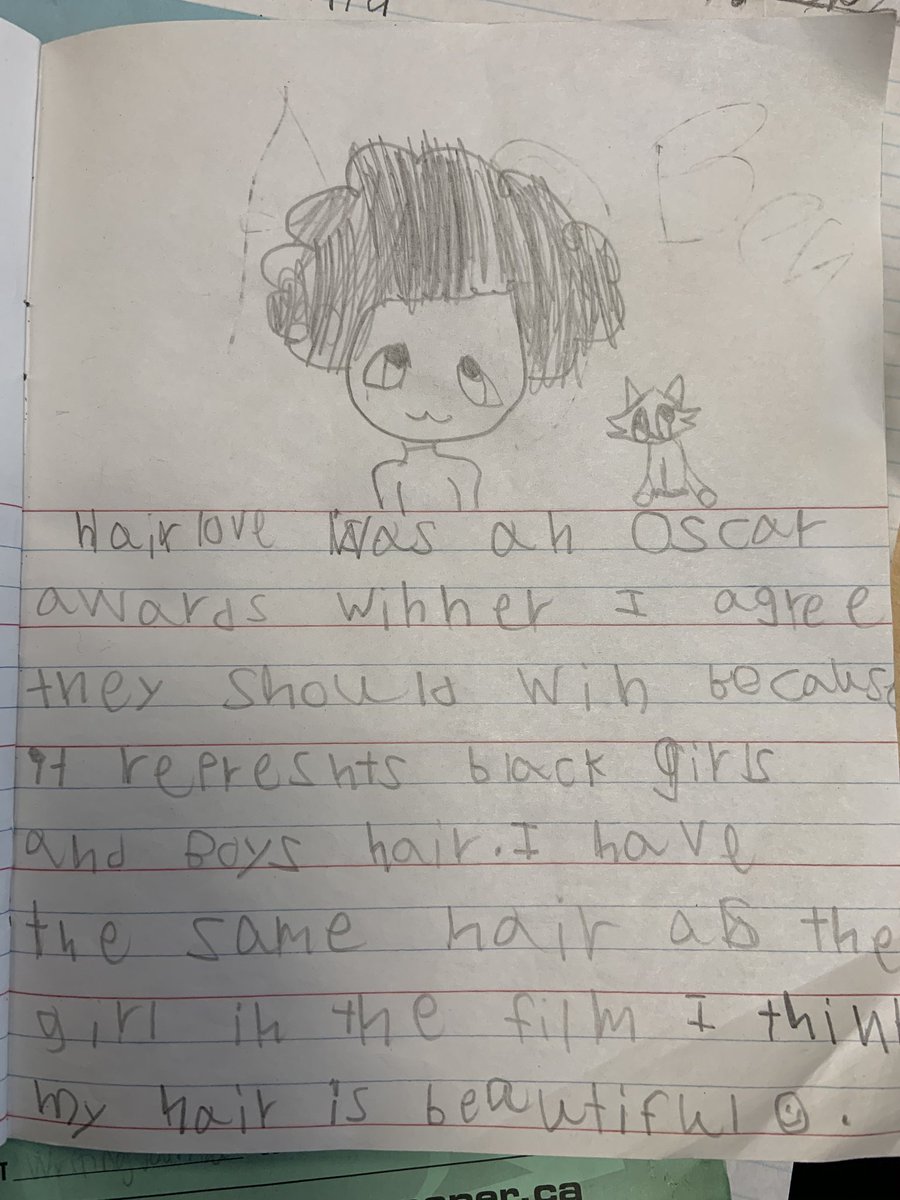 Hair love Was an Oscar
awards winner I agree
they should win because
it represnts black girls
and Boys hair. I have
the same hair as the
girl in the film I think
my hair is beautiful ☺.
per.ca